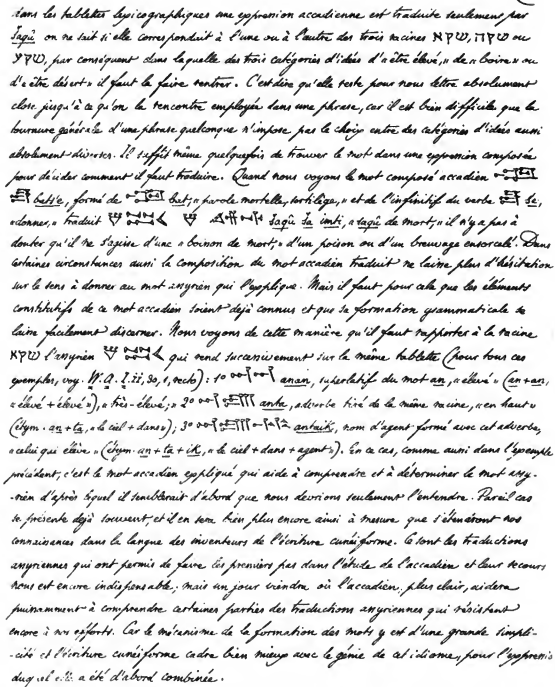 dans les tablettes lexicographiques une expression accadienne est traduite seulement par
šaqû on ne sait si elle correspondrait à l'une ou à l'autre des trois racines שקה, שקא ou
שקע, par conséquent dans laquelle des trois catégories d'idées d'« être élevé, » de « boire » ou
d'« être désert » il faut la faire rentrer. C'est dire qu'elle reste pour nous lettre absolument
close jusqu'à ce qu'on la rencontre employée dans une phrase, car il est bien difficile que la
tournure générale d'une phrase quelconque n'impose pas le choix entre des catégories d'idées aussi
absolument diverses. Il suffit même quelquefois de trouver le mot dans une expression composée
pour décider comment il faut traduire. Quand nous voyons le mot composé accadien
formé de « parole mortelle, sortilège, » et de l'infinitif du verbe
« donner, » traduit šaqû ša imti, « šaqû de mort, » il n'y a pas à
douter qu'il ne s'agisse d'une « boisson de mort, » d'un poison ou d'un breuvage ensorcelé. Dans
certaines circonstances aussi la composition du mot accadien traduit ne laisse plus d'hésitation
sur le sens à donner au mot assyrien qui l'explique. Mais il faut pour cela que les éléments
constitutifs de ce mot accadien soient déjà connus et que sa formation grammaticale se
laisse facilement discerner. Nous voyons de cette manière qu'il faut rapporter à la racine
שקא l'assyrien qui rend successivement sur la même tablette (pour tous ces
exemples, voy. W. A. I. ii, 30, 1, recto) : 1° anan, superlatif du mot an, « élevé » (an + an,
« élevé + élevé »), « très-élevé; » 2° anta, adverbe tiré de la même racine, « en haut »
(étym. an + ta, « le ciel + dans »); 3° antaik, nom d'agent formé avec cet adverbe,
« celui qui élève. » (étym. an + ta + ik, « le ciel + dans + agent »). En ce cas, comme aussi dans l'exemple
précédent, c'est le mot accadien expliqué qui aide à comprendre et à déterminer le mot assy-
-rien d'après lequel il semblerait d'abord que nous devrions seulement l'entendre. Pareil cas
se présente déjà souvent, et il en sera bien plus encore ainsi à mesure que s'étendront nos
connaissances dans la langue des inventeurs de l'écriture cunéiforme. Ce sont les traductions
assyriennes qui ont permis de faire les premiers pas dans l'étude de l'accadien et leur secours
nous est encore indispensable; mais un jour viendra où l'accadien, plus clair, aidera
puissamment à comprendre certaines parties des traductions assyriennes qui résistent
encore à nos efforts. Car le mécanisme de la formation des mots y est d'une grande simpli-
-cité et l'écriture cunéiforme cadre bien mieux avec le génie de cet idiome, pour l'expression
duquel elle a été d'abord combinée.